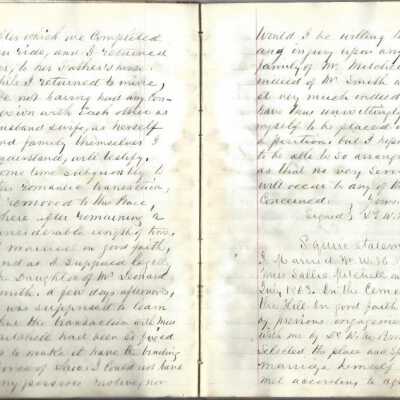 after which we Completed
our ride, and I returned
her, to her Father's house.
while I returned to mine,
We not having had any Con-
nexion with each other as
husband & wife, as herself
and family themselves I
understand, will testify.
Some time subsequently to
this Romantic transaction,
I removed to this Place,
where after remaining a
considerable length of time,
I married in good faith,
and as I supposed legally
the Daughter of Mr Leonard
Smith. A few days afterwards,
I was surprised to learn
that the transaction with Miss
Mitchell had been so fixed
as to make it have the binding
force of Law. I could not have
any possible motive, nor
Would I be willing to
any injury upon any
family of Mr Mitchell
indeed of Mr Smith a
it very much indeed
have thus unwittingly
myself to be placed in
a position. but I hope
to be able to so arrange
as that no very Serio
will occur to any of the
Concerned. Yours
Signed Dr W.
Squire Statem
I Married Mr W. B.
Miss Sallie Mitchell on
July 1863. In the Ceme
the Hill in good faith
by previous engagement
with me by Dr W.
selected the place and
marriage himself
met according to ag